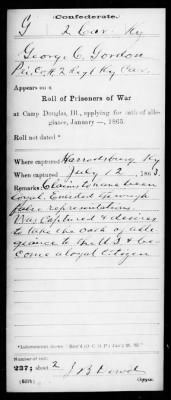 Confederate.
G 2 Cav. Ky
George C. Gordon
Pri. Co. K 2 Regt Ky Cav.
Appears on a
Roll of Prisoners of War
at Camp Douglas, Ill., applying for oath of alle-
giance, January —, 1865.
Roll not dated
Where captured Harrodsburg Ky
When captured July 12, 1863.
Remarks: Claims to have been
loyal. Enlisted through
false representations.
Was Captured & desires
to take the oath of alle-
giance to the U.S. & be-
come a loyal Citizen
Number of roll:
237; sheet 2
Copyist.